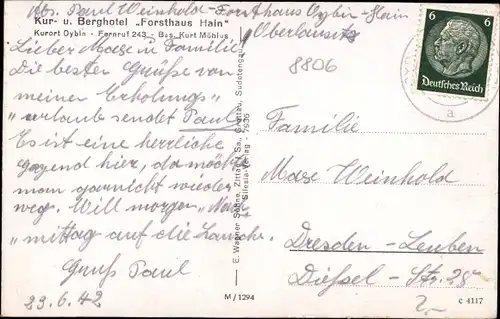 Abs. Paul Weinhold - Forsthaus Oybin - Hain
Oberlausitz
Kur- u. Berghotel „Forsthaus Hain"
Kurort Oybin - Fernruf 243 - Bes. Kurt Möbius
Lieber Maese u. Familie
Die besten Grüße von
meiner Erholungs"
"urlaub sendet Paul
Es ist eine herrliche
Gegend hier, da möcht
man garnicht wieder
weg. Will morgen Nach"
"mittag auf die Lausche.
Gruß Paul
23.6.42
E. Wagner Söhne, Zittau i. Sa., Grottau, Sudetengau
Silesia-Verlag - 7936
M/1294
8806
6 6
Deutsches Reich
a
Familie
Mase Weinhold
Dresden - Leuben
Dießel - Str. 28
2,-
C 4117